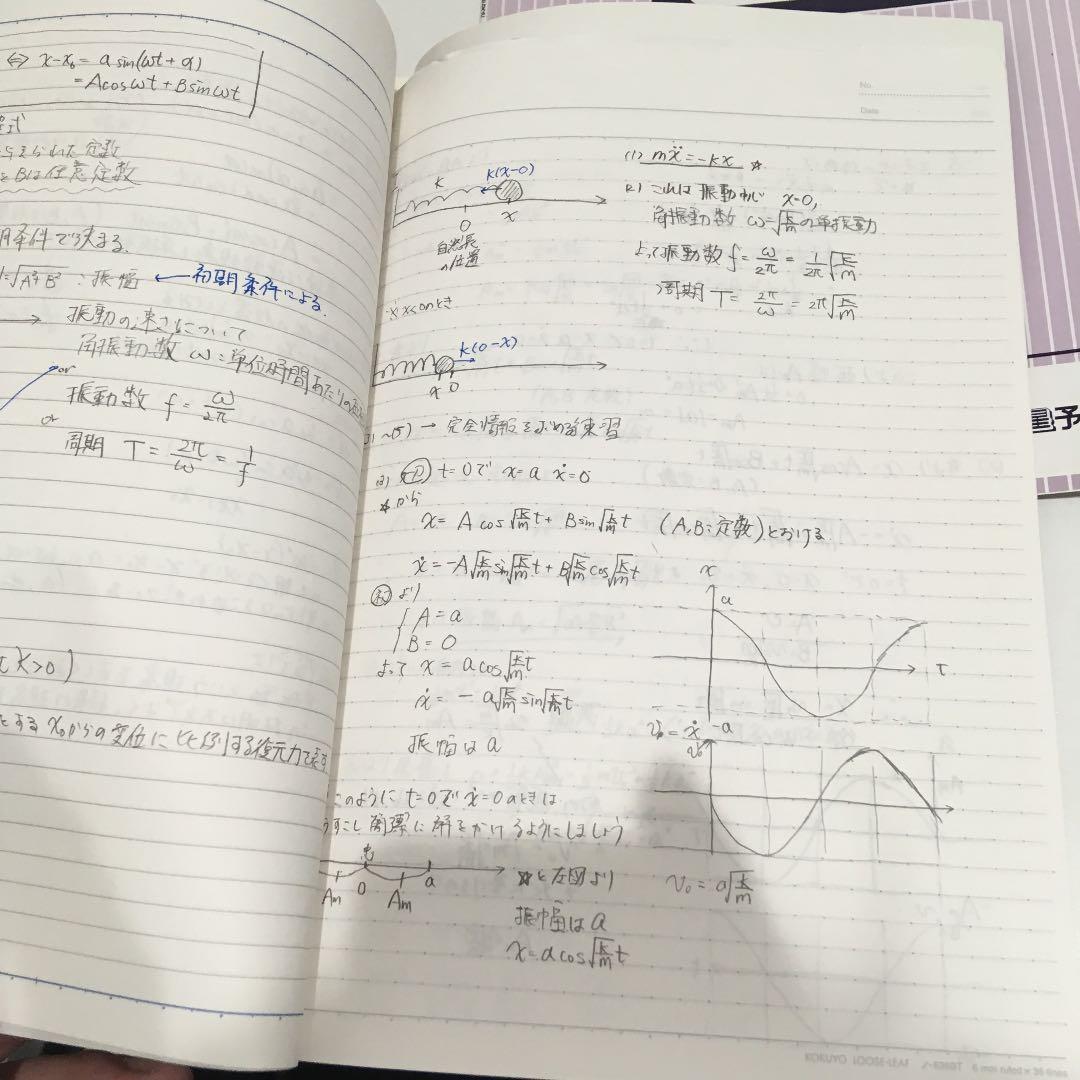 ⇔ x-x₀ = a sin(ωt + α)
= A cos ωt + B sin ωt
程式
与えられた定数
とBは任意定数
期条件で決まる.
=√A²+B² : 振幅 ← 初期条件による.
→ 振動の速さについて
角振動数 ω = 単位時間あたりの
or
振動数 f = ω/2π
or
周期 T = 2π/ω = 1/f
k>0)
とする x₀からの変位に比例する復元力で表す
No.
Date
k
k(x-0)
0
x
自然長
の位置
※ x<0のとき
k(0-x)
x 0
(1) mẍ = -kx ☆
(2) これは振動中心 x=0,
角振動数 ω=√k/m の単振動
よって振動数 f = ω/2π = 1/2π √k/m
周期 T = 2π/ω = 2π√k/m
~(5) → 完全情報を求める練習
(3) 初 t=0で x=a ẋ=0
☆から
x = A cos√k/m t + B sin√k/m t (A,B:定数)とおける
ẋ = -A√k/m sin√k/m t + B√k/m cos√k/m t
初より
{ A = a
{ B = 0
よって x = a cos√k/m t
ẋ = - a√k/m sin√k/m t
振幅は a
x
a
t
-a
v₀ = ẋ
v₀
v₀ = a√k/m
このように t=0で ẋ=0のときは
うすこし簡潔に解をかけるようにしましょう
Am 0 Am a
☆と左図より
振幅は a
x = a cos√k/m t
量予
KOKUYO LOOSE-LEAF ノ-836BT 6 mm ruled × 36 lines